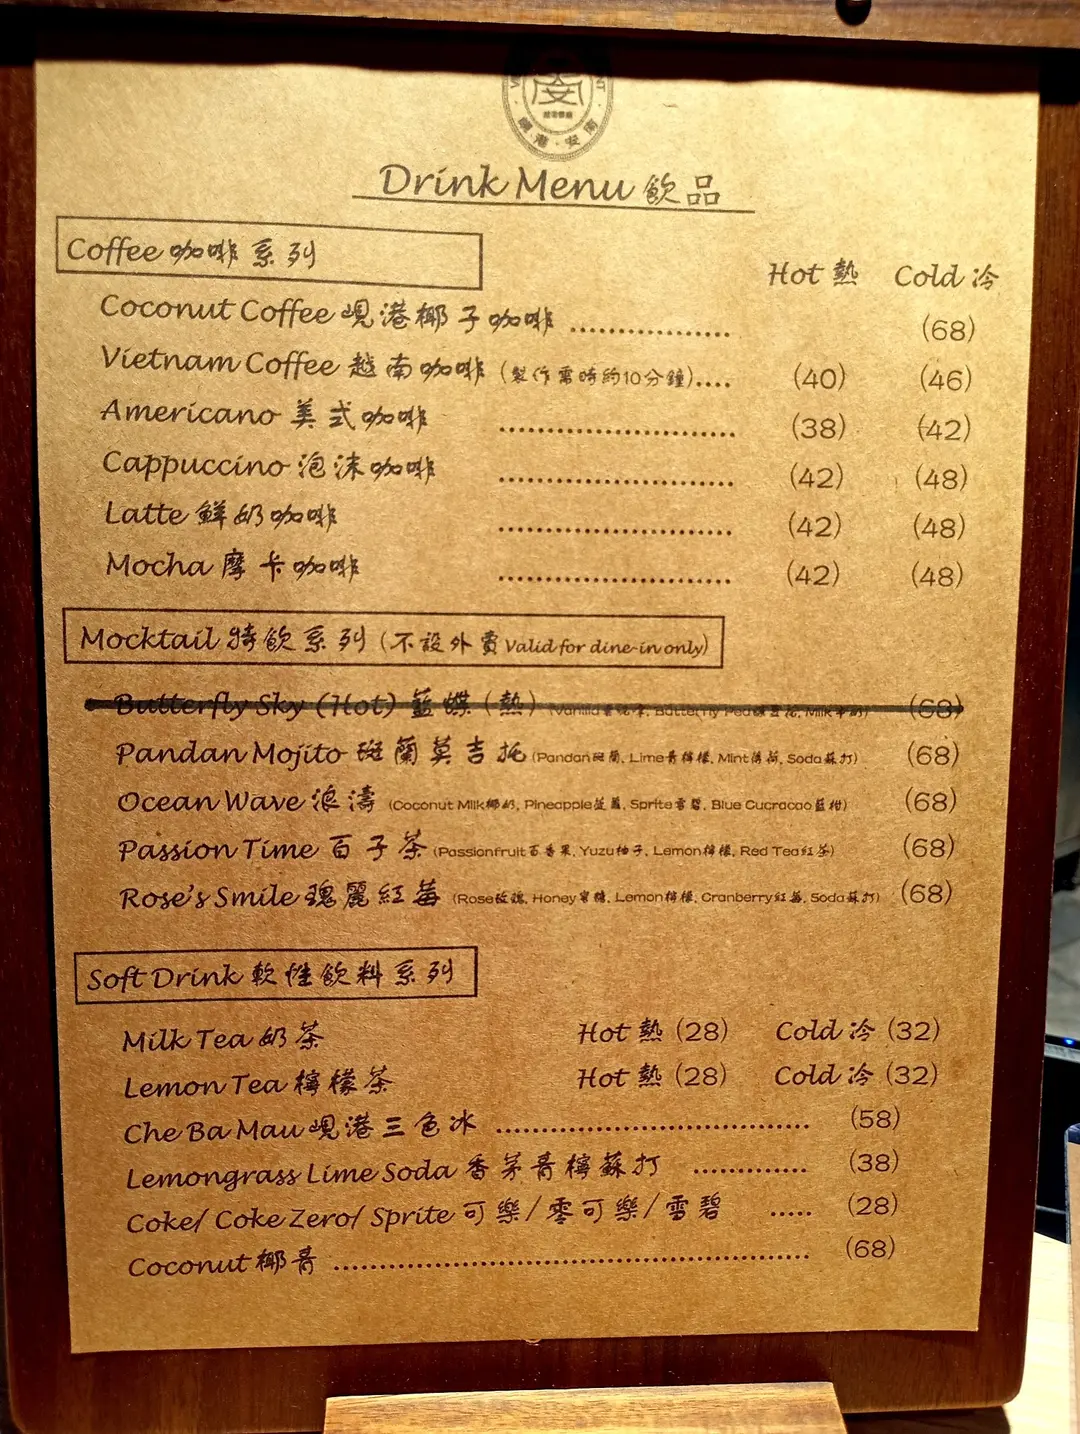 峴港·安南
Drink Menu 飲品
Coffee 咖啡系列
Hot 熱 Cold 冷
Coconut Coffee 峴港椰子咖啡 ................. (68)
Vietnam Coffee 越南咖啡 (製作需時約10分鐘).... (40) (46)
Americano 美式咖啡 ........................ (38) (42)
Cappuccino 泡沫咖啡 ........................ (42) (48)
Latte 鮮奶咖啡 ........................ (42) (48)
Mocha 摩卡咖啡 ........................ (42) (48)
Mocktail 特飲系列 (不設外賣 Valid for dine-in only)
Butterfly Sky (Hot) 藍蝶 (熱) (68)
Pandan Mojito 斑蘭莫吉托 (Pandan斑蘭, Lime青檸檬, Mint薄荷, Soda蘇打) (68)
Ocean Wave 浪濤 (Coconut Milk椰奶, Pineapple菠蘿, Sprite雪碧, Blue Cucracao藍柑) (68)
Passion Time 百子茶 (Passionfruit百香果, Yuzu柚子, Lemon檸檬, Red Tea紅茶) (68)
Rose's Smile 瑰麗紅莓 (Rose玫瑰, Honey蜜糖, Lemon檸檬, Cranberry紅莓, Soda蘇打) (68)
Soft Drink 軟性飲料系列
Milk Tea 奶茶 Hot 熱 (28) Cold 冷 (32)
Lemon Tea 檸檬茶 Hot 熱 (28) Cold 冷 (32)
Che Ba Mau 峴港三色冰 .................................. (58)
Lemongrass Lime Soda 香茅青檸蘇打 ............ (38)
Coke/ Coke Zero/ Sprite 可樂/零可樂/雪碧 ..... (28)
Coconut 椰青 .................................................... (68)